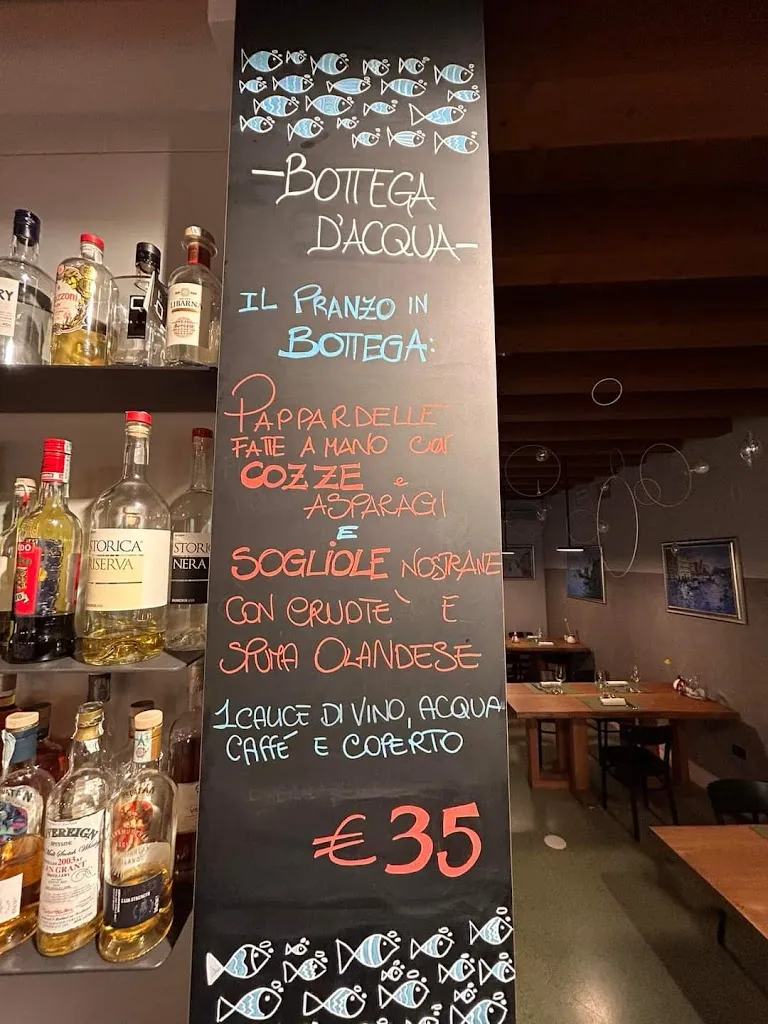 —BOTTEGA
D'ACQUA—
IL PRANZO IN
BOTTEGA:
PAPPARDELLE
FATTE A MANO con
COZZE e
ASPARAGI
E
SOGLIOLE NOSTRANE
CON CRUDTÈ E
SPUMA OLANDESE
1 CALICE DI VINO, ACQUA
CAFFÉ E COPERTO
€35
LIBARNA
STORICA
RISERVA
STORIC
NERA
EREIGN
SPEYSIDE
2003